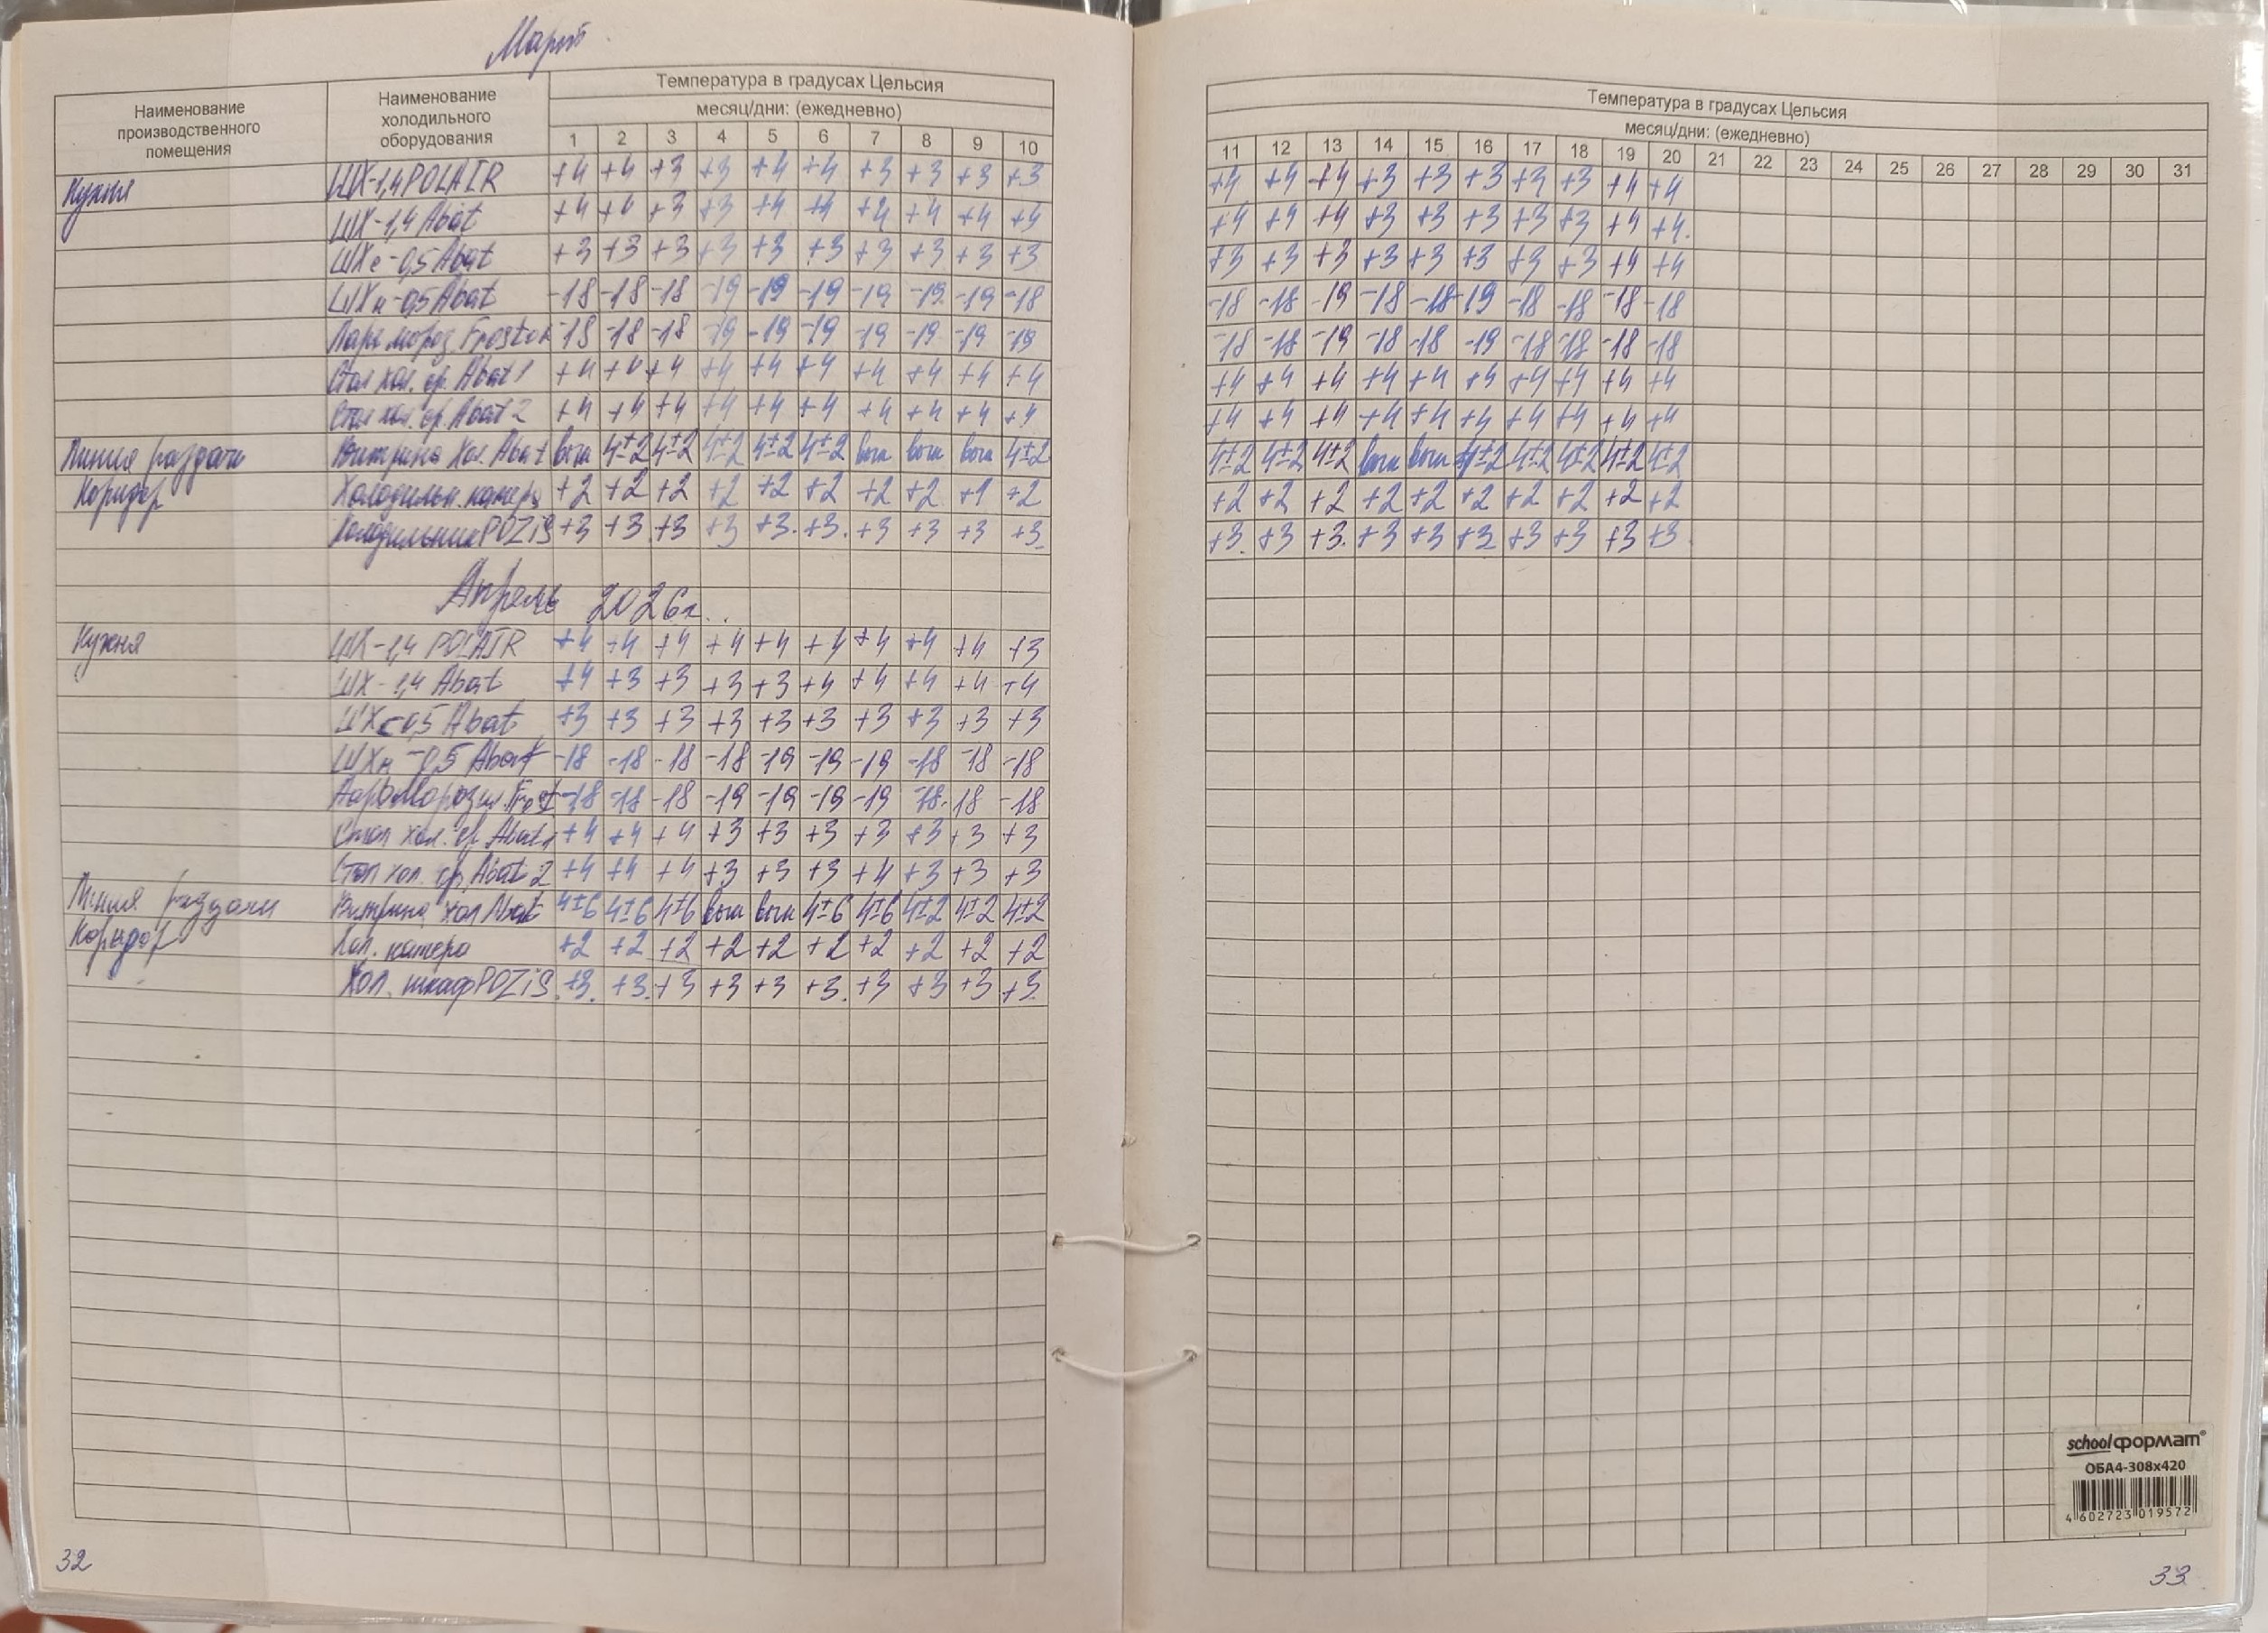 Март
Температура в градусах Цельсия
Наименование производственного помещения
Наименование холодильного оборудования
месяц/дни: (ежедневно)
1 2 3 4 5 6 7 8 9 10
Кухня ШХ-1,4 POLAIR +4 +4 +3 +3 +4 +4 +3 +3 +3 +3
ШХ-1,4 Abat +4 +4 +3 +3 +4 +4 +4 +4 +4 +4
ШХс-0,5 Abat +3 +3 +3 +3 +3 +3 +3 +3 +3 +3
ШХн-0,5 Abat -18 -18 -18 -19 -19 -19 -19 -19 -19 -18
Ларь мороз. Frostor -18 -18 -18 -19 -19 -19 -19 -19 -19 -19
Стол хол. ср. Abat 1 +4 +4 +4 +4 +4 +4 +4 +4 +4 +4
Стол хол. ср. Abat 2 +4 +4 +4 +4 +4 +4 +4 +4 +4 +4
Линия раздачи Витрина хол. Abat 4±2 4±2 4±2 4±2 4±2 4±2
Коридор Холодильн. камера +2 +2 +2 +2 +2 +2 +2 +2 +1 +2
Холодильник POZiS +3 +3 +3 +3 +3 +3 +3 +3 +3 +3
Апрель 2026г.
Кухня ШХ-1,4 POLAIR +4 +4 +4 +4 +4 +4 +4 +4 +4 +3
ШХ-1,4 Abat +4 +3 +3 +3 +3 +4 +4 +4 +4 +4
ШХс-0,5 Abat +3 +3 +3 +3 +3 +3 +3 +3 +3 +3
ШХн-0,5 Abat -18 -18 -18 -18 -19 -19 -19 -18 -18 -18
Frost -18 -18 -18 -19 -19 -19 -19 -18 -18 -18
Стол хол. ср. Abat 1 +4 +4 +4 +3 +3 +3 +3 +3 +3 +3
Стол хол. ср. Abat 2 +4 +4 +4 +3 +3 +3 +4 +3 +3 +3
Линия раздачи Витрина хол Abat 4±6 4±6 4±6 4±6 4±6 4±2 4±2 4±2
Коридор Хол. камера +2 +2 +2 +2 +2 +2 +2 +2 +2 +2
Хол. шкаф POZiS +3 +3 +3 +3 +3 +3 +3 +3 +3 +3
32
Температура в градусах Цельсия
месяц/дни: (ежедневно)
11 12 13 14 15 16 17 18 19 20 21 22 23 24 25 26 27 28 29 30 31
+4 +4 +4 +3 +3 +3 +3 +3 +4 +4
+4 +4 +4 +3 +3 +3 +3 +3 +4 +4
+3 +3 +3 +3 +3 +3 +3 +3 +4 +4
-18 -18 -19 -18 -18 -19 -18 -18 -18 -18
-18 -18 -19 -18 -18 -19 -18 -18 -18 -18
+4 +4 +4 +4 +4 +4 +4 +4 +4 +4
+4 +4 +4 +4 +4 +4 +4 +4 +4 +4
4±2 4±2 4±2 4±2 4±2 4±2 4±2 4±2
+2 +2 +2 +2 +2 +2 +2 +2 +2 +2
+3 +3 +3 +3 +3 +3 +3 +3 +3 +3
schoolформат
ОБА4-308х420
4 602723 019572
33